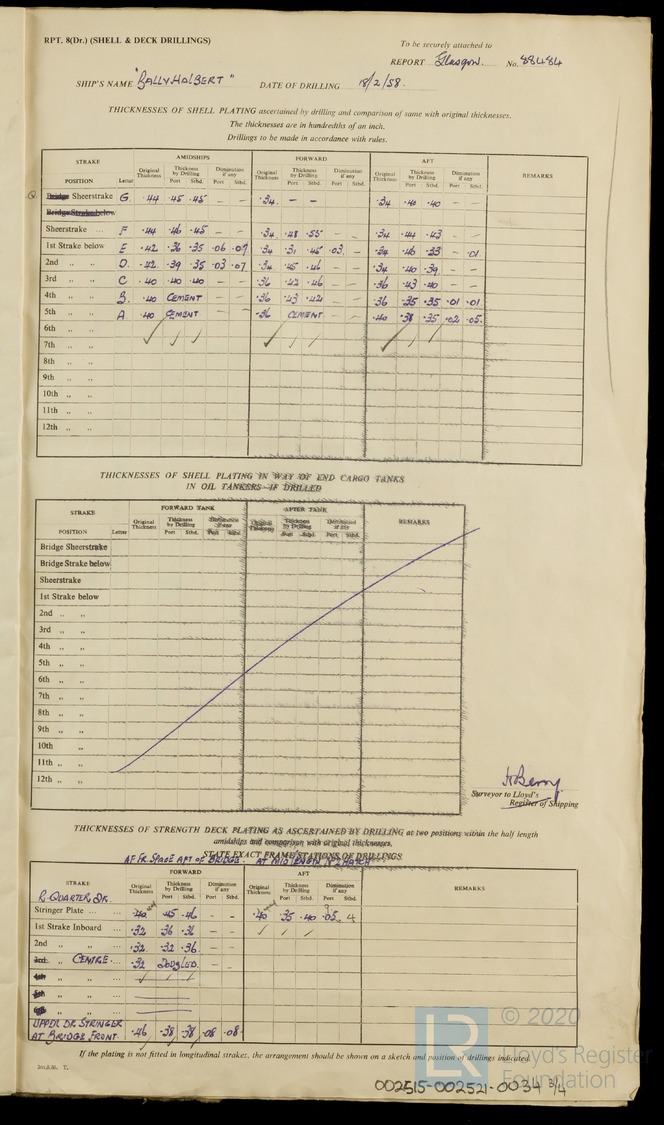 RPT. 8(Dr.) (SHELL & DECK DRILLINGS)
To be securely attached to
REPORT Glasgow. No. 88484
SHIP'S NAME "BALLYHALBERT" DATE OF DRILLING 18/2/58.
THICKNESSES OF SHELL PLATING ascertained by drilling and comparison of same with original thicknesses.
The thicknesses are in hundredths of an inch.
Drillings to be made in accordance with rules.
STRAKE AMIDSHIPS FORWARD AFT REMARKS
POSITION Letter Original Thickness Thickness by Drilling Port Stbd. Diminution if any Port Stbd. Original Thickness Thickness by Drilling Port Stbd. Diminution if any Port Stbd. Original Thickness Thickness by Drilling Port Stbd. Diminution if any Port Stbd.
Q. Bridge Sheerstrake G .44 .45 .45 - - .34 - - .34 .40 .40 - -
Bridge Strake below
Sheerstrake ... F .44 .46 .45 - - .34 .48 .55 - - .34 .44 .43 - -
1st Strake below E .42 .36 .35 .06 .07 .34 .31 .45 .03 - .34 .46 .33 - .01
2nd " " D. .42 .39 .35 .03 .07 .34 .45 .46 - - .34 .40 .39 - -
3rd " " C .40 .40 .40 - - .36 .42 .46 - - .36 .43 .40 - -
4th " " B. .40 CEMENT - - .36 .43 .42 - - .36 .35 .35 .01 .01
5th " " A .40 CEMENT - - .36 CEMENT - - .40 .38 .35 .02 .05
6th " "
7th " "
8th " "
9th " "
10th " "
11th " "
12th " "
THICKNESSES OF SHELL PLATING IN WAY OF END CARGO TANKS
IN OIL TANKERS IF DRILLED
STRAKE FORWARD TANK AFTER TANK REMARKS
POSITION Letter Original Thickness Thickness by Drilling Port Stbd. Diminution if any Port Stbd. Original Thickness Thickness by Drilling Port Stbd. Diminution if any Port Stbd.
Bridge Sheerstrake
Bridge Strake below
Sheerstrake
1st Strake below
2nd " "
3rd " "
4th " "
5th " "
6th " "
7th " "
8th " "
9th " "
10th "
11th " "
12th " "
Berry
Surveyor to Lloyd's
Register of Shipping
THICKNESSES OF STRENGTH DECK PLATING AS ASCERTAINED BY DRILLING at two positions within the half length
amidships and comparison with original thicknesses.
STATE EXACT FRAME STATIONS OF DRILLINGS
AF FR. SPACE AFT OF BRIDGE. AT MID LENGTH No2 HATCH
STRAKE FORWARD AFT REMARKS
Original Thickness Thickness by Drilling Port Stbd. Diminution if any Port Stbd. Original Thickness Thickness by Drilling Port Stbd. Diminution if any Port Stbd.
R. QUARTER DK.
Stringer Plate ... .40 .45 .46 - - .40 .35 .40 .05 4
1st Strake Inboard ... .32 .36 .36 - -
2nd " " ... .32 .32 .36 - -
3rd " CENTRE ... .32 DOUBLED. - -
4th " " ...
5th " " ...
6th " " ...
UPPER DK STRINGER
AT BRIDGE FRONT. .46 .38 .38 .08 .08
If the plating is not fitted in longitudinal strakes, the arrangement should be shown on a sketch and position of drillings indicated.
LR © 2020
Lloyd's Register
Foundation
002515-002521-0034 3/4